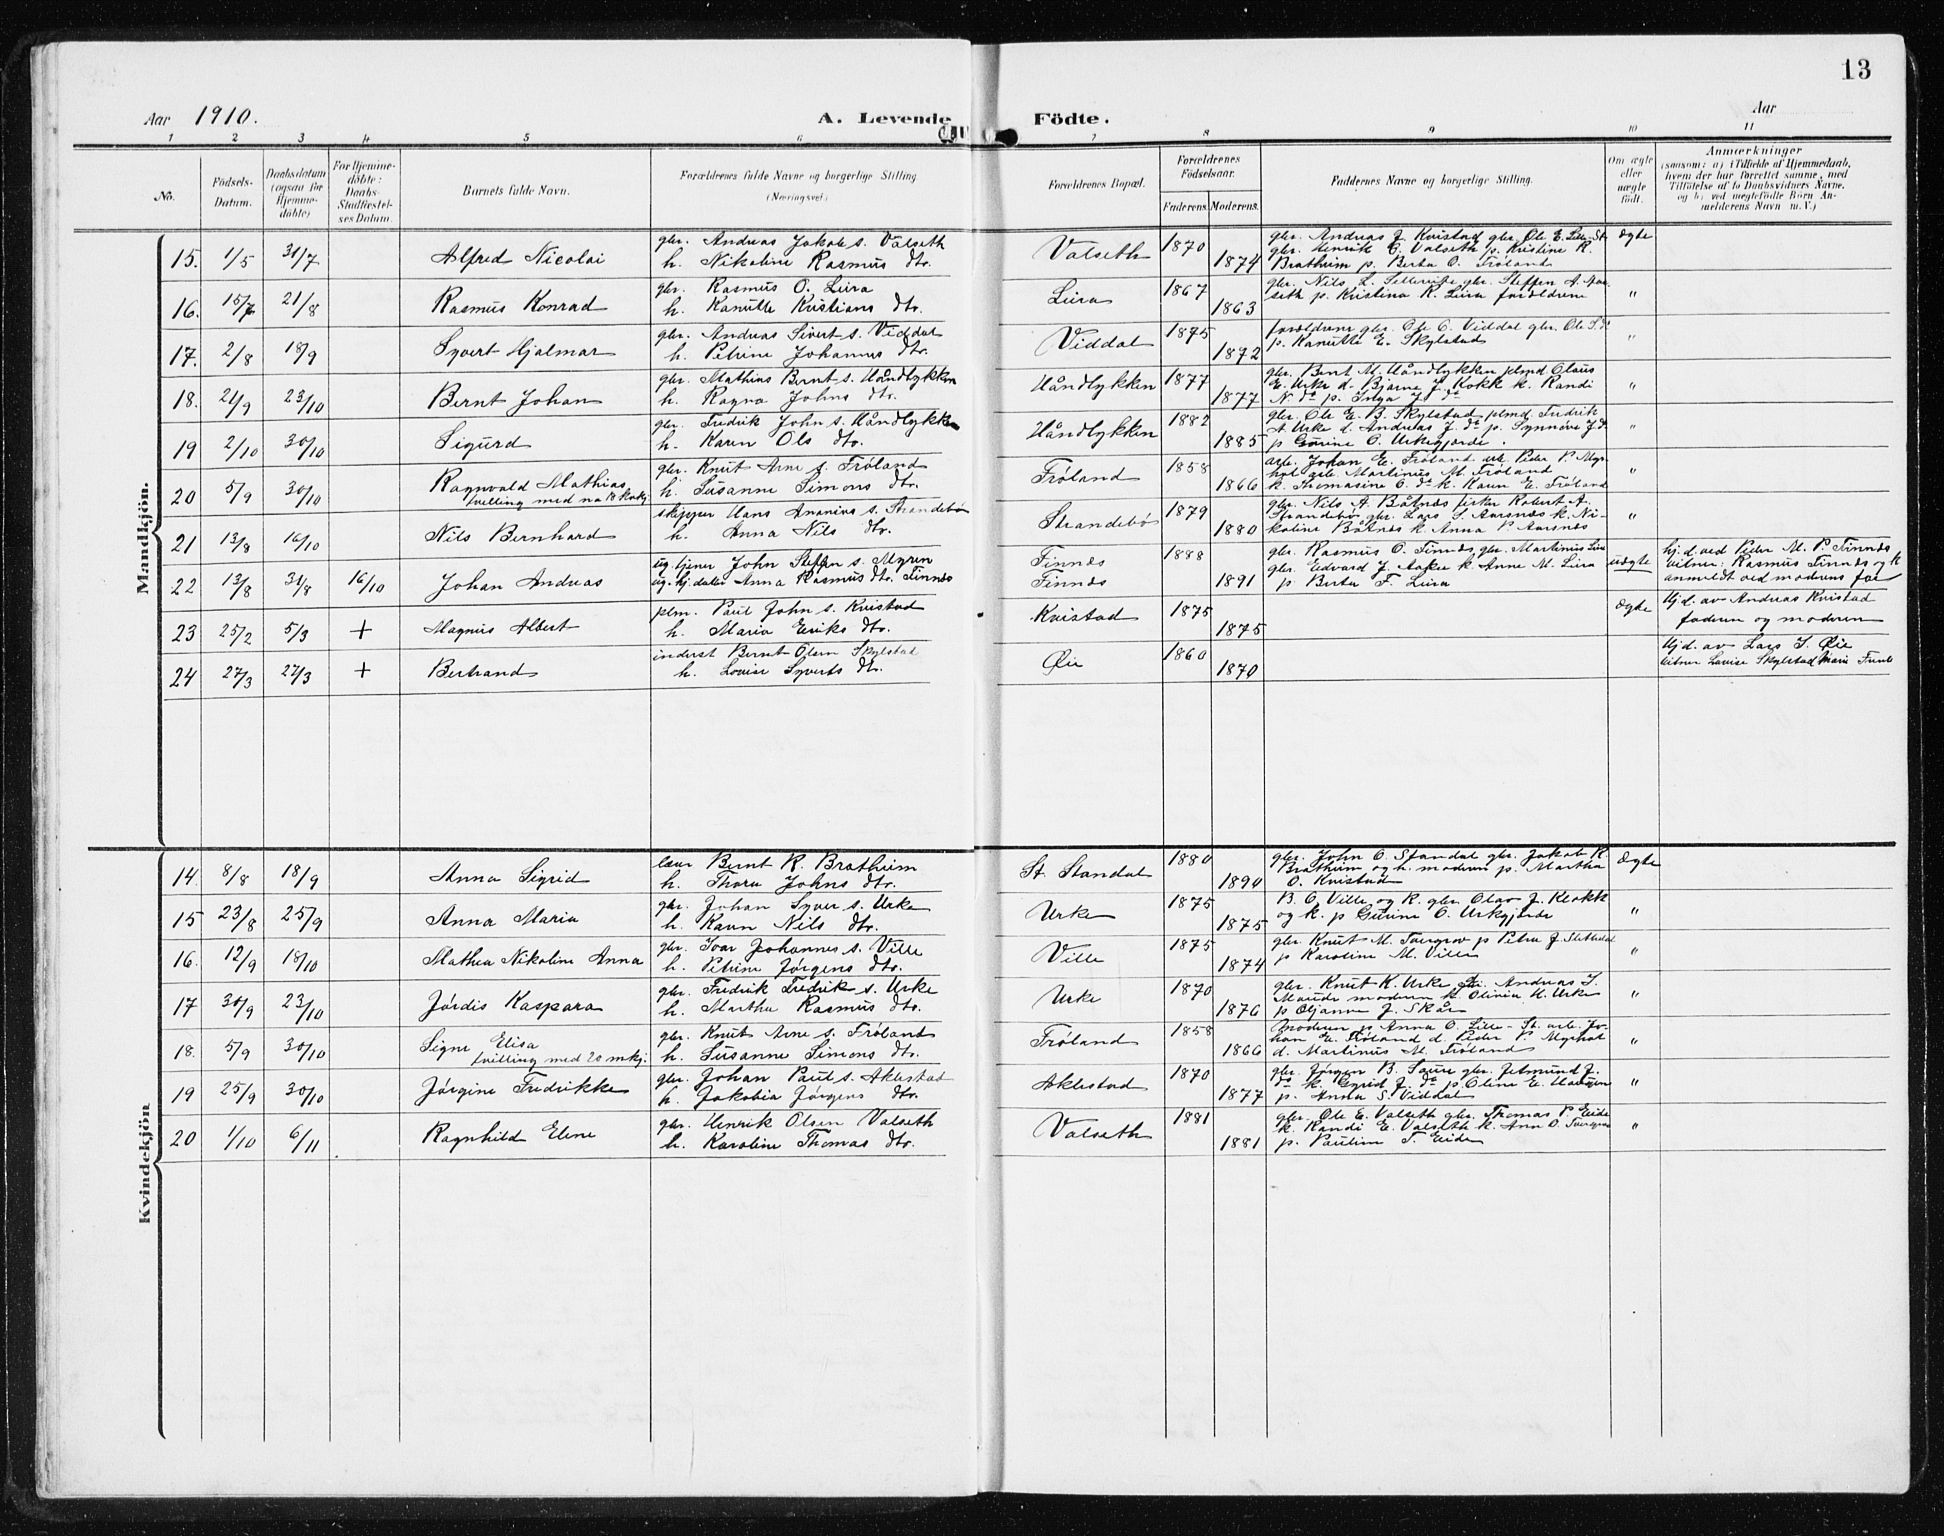 13
Aar 1910.
A. Levende Födte.
Aar
1 2 3 4 5 6 7 8 9 10 11
No.
Födsels-Datum.
Daabsdatum (ogsaa for Hjemme-döbte)
For Hjemme-döbte: Daabs-Stadfæstel-ses Datum.
Barnets fulde Navn.
Forældrenes fulde Navne og borgerlige Stilling (Næringsvei.)
Forældrenes Bopæl.
Forældrenes Födselsaar.
Faderens. Moderens.
Faddernes Navne og borgerlige Stilling.
Om ægte eller uægte födt.
Anmærkninger
(saasom: a) i Tilfælde af Hjemmedaab,
hvem der har forrettet samme, med
Tilföielse af to Daabsvidners Navne,
og b) ved uægtefödte Börn An-
melderens Navn m. V.)
Mandkjön.
15. 1/5 31/7 Alfred Nicolai
gbr. Andreas Jakobs s. Valseth
h. Nikoline Rasmus dtr.
Valseth 1870 1874
gbr. Andreas J. Kvistad gbr. Ole E. Lille-St.
gbr. Henrik O. Valseth p. Kristine R.
Bratheim p. Berta O. Tröland
ægte
16. 15/7 21/8 Rasmus Konrad
gbr. Rasmus O. Leira
h. Kanutte Kristians dtr.
Leira 1867 1863
gbr. Nils L. gbr. Steffen A.
seth p. Kristina R. Leira forældrene
"
17. 2/8 18/9 Syvert Hjalmar
gbr. Andreas Sivert s. Viddal
h. Petrine Johannes dtr.
Viddal 1875 1872
forældrene gbr. Ole O. Viddal gbr. Ole S. ds
p. Kanutte E. Skylstad
"
18. 21/9 23/10 Bernt Johan
gbr. Mathias Bernt s. Håndlykken
h. Ragna Johns dtr.
Håndlykken 1877 1877
gbr. Bernt M. Håndlykken plmd Claus
E. Urke d. Bjarne J. Kokk k. Randi
N. do p. Inga J. do
"
19 2/10 30/10 Sigurd
gbr. Fredrik John s. Håndlykken
h. Karen Ols dtr.
Håndlykken 1882 1885
gbr. Ole E. B. Skylstad plmd. Fredrik
A. Urke d. Andreas J. do p. Synnöve J. d.
p Gurine O. Urkegjerde.
"
20 5/9 30/10 Ragnvald Mathias
tvilling med no 18 kvkj.
gbr. Knut Arne s. Tröland
h. Susanne Simons dtr.
Tröland 1858 1866
arb. Johan E. Tröland arb. Peder P. Myr-
hol arb. Martinus M. Tröland
k. Thomasine O. do k. Karen E. Tröland
"
21 13/8 16/10 Nils Bernhard
skipper Hans Ananias s. Strandebö
h. Anna Nils dtr.
Strandebö 1879 1880
gbr. Nils A. Båtnes fisker Robert A.
Strandebö gbr. Lars S. Aarsnes k. Ni-
koline Båtnes k. Anna P. Aarsnes
"
22 13/8 31/8 16/10 Johan Andreas
ug. tjener John Steffen s. Myren
ug. hj. dater Anna Rasmus dtr. Finnes
Finnes
Finnes
1888 1891
gbr. Rasmus O. Finnes gbr. Martinus Leira
gbr. Edvard J. Aaker k. Anne M. Leira
p Berta F. Leira
uægte
hj. d. ved Peder M. P. Finnes
vitner: Rasmus Finnes og k
anmeldt ved moderens far
23 25/2 5/3 + Magnus Albert
plm. Paul John s. Kvistad
h. Maria Eriks dtr.
Kvistad 1875 1875
ægte
Hj. d. av Andreas Kvistad
faderen og moderen
24 27/3 27/3 + Bertrand
inderst Bernt Olsen Skylstad
h. Lovise Syverts dtr.
Öie 1860 1870
Hj. d. av Lars I. Öie
vitner Lavise Skylstad Marie
Kvindekjön
14. 8/8 18/9 Anna Sigrid
lærer Bernt R. Bratheim
h. Thora Johns dtr.
St. Standal 1880 1890
gbr. John O. Standal gbr. Jakob R.
Bratheim og h. moderen p. Martha
O. Kvistad
ægte
15 23/8 25/9 Anna Maria
gbr. Johan Syver s. Urke
h. Karen Nils dtr.
Urke 1875 1875
B. O. Ville og k. gbr. Olav J. Klokk
og k. p Gurine O. Urkegjerde
"
16. 12/9 18/10 Mathea Nikoline Anna
gbr. Ivar Johannes s. Ville
h. Petrine Jörgens dtr.
Ville 1875 1874
gbr. Knut M. Tvergrov p Petra J. Slettedal
p Karoline M. Ville
"
17 30/9 23/10 Jördis Kaspara
gbr. Fredrik Fredrik s. Urke
h. Martha Rasmus dtr.
Urke 1870 1876
gbr. Knut K. Urke gbr. Andreas I.
moderen k. Olivia H. Urke
p Oljanne J. Skår
"
18. 5/9 30/10 Signe Elisa
tvilling med 20 mkj.
gbr. Knut Arne s. Tröland
h. Susanne Simons dtr.
Tröland 1858 1866
Moderen p. Anna O. Lille-St. arb. Jo-
han E. Tröland d. Peder P. Myrhol
d. Martinus M. Tröland
"
19 25/9 30/10 Jörgine Fredrikke
gbr. Johan Paul s. Aklestad
h. Jakobia Jörgens dtr.
Aklestad 1870 1877
gbr. Jörgen B. Saure gbr. Jetmund J.
do k. Sigrid J. do p. Oline E.
p. Anna S. Viddal
"
20 1/10 6/11 Ragnhild Eline
gbr. Henrik Olsen Valseth
h. Karoline Thomas dtr.
Valseth 1881 1881
gbr. Ole E. Valseth gbr. Thomas P. Eide
k. Randi E. Valseth k. Ann O. Tvergrov
p. Pauline T. Eide
"